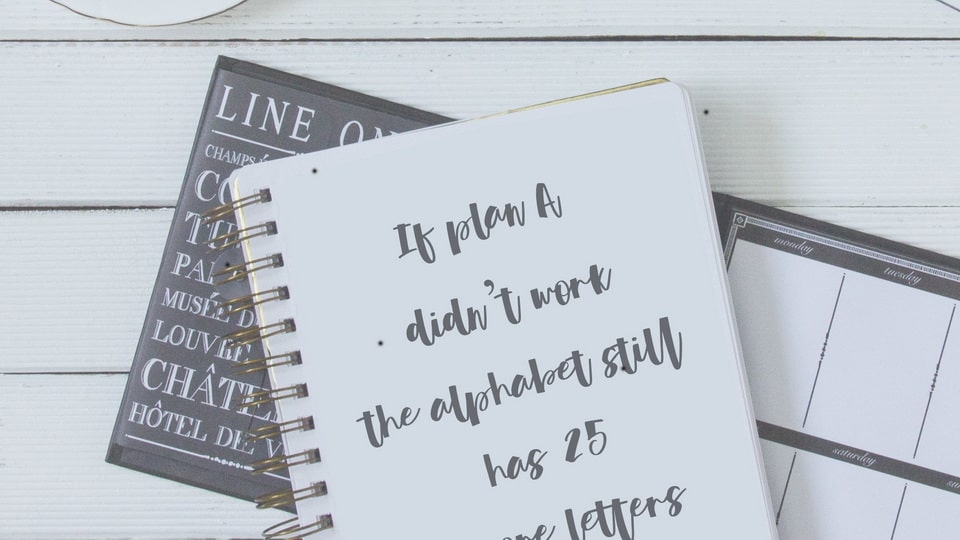 LINE
CHAMPS
MUSÉE
LOUVRE
HÔTEL DE
If plan A
didn't work
the alphabet still
has 25
letters
monday
tuesday
saturday